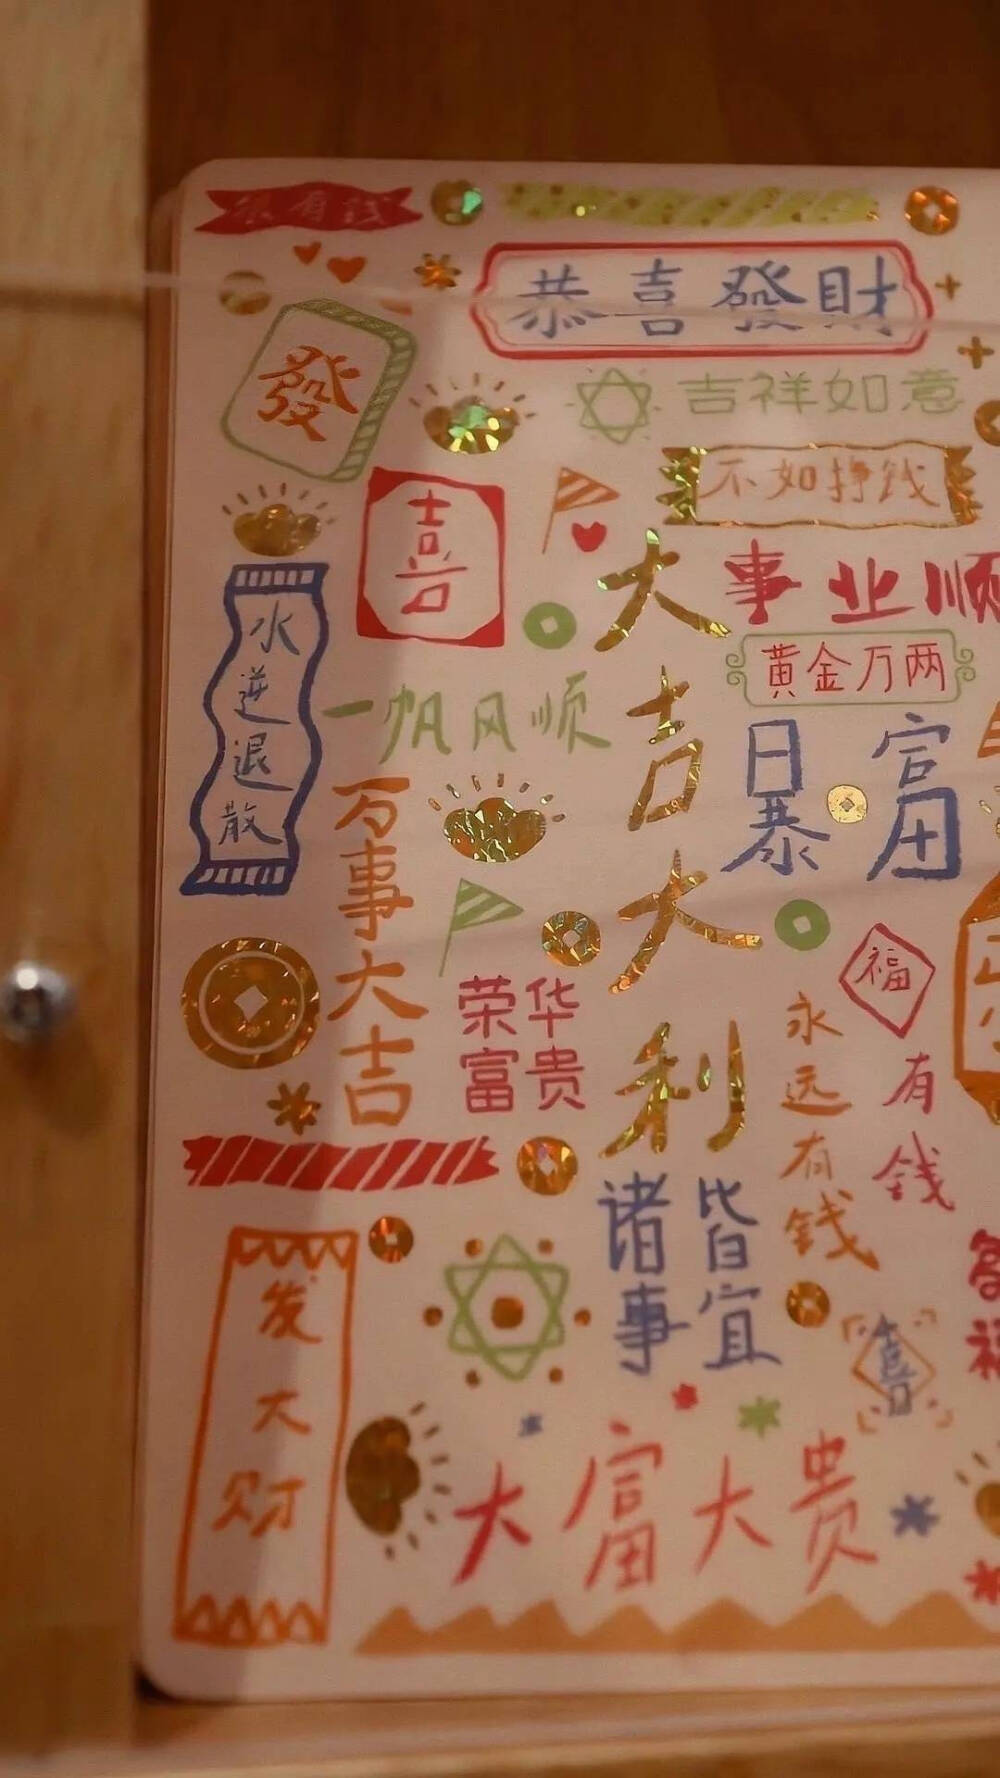 很有钱
恭喜發財
發
吉祥如意
不如挣钱
喜
大吉大利
事业顺
黄金万两
水逆退散
一帆风顺
暴富
万事大吉
福
荣华
富贵
永远有钱
有钱
诸事
皆宜
发大财
喜
大富大贵